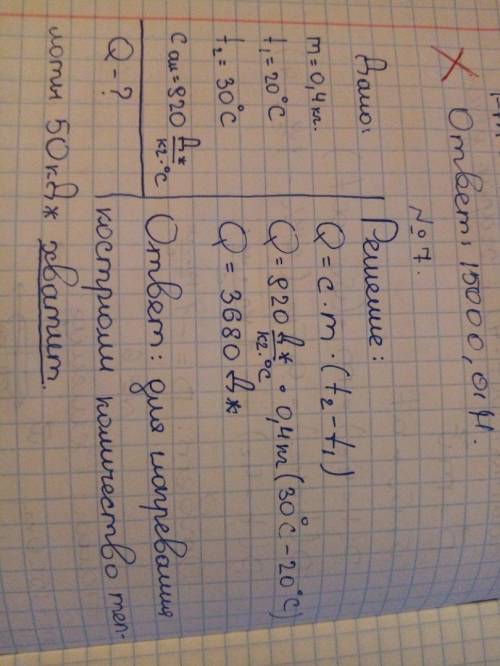 Ответ: 15000,01 Н.
№ 7.
Дано:
m = 0,4 кг.
t₁ = 20°C
t₂ = 30°C
C ал = 920 Дж/кг·°C
Q - ?
Решение:
Q = c · m · (t₂ - t₁)
Q = 920 Дж/кг·°C · 0,4 кг (30°C - 20°C)
Q = 3680 Дж
Ответ: для нагревания
кострюли количество теп-
лоты 50 кДж хватит.